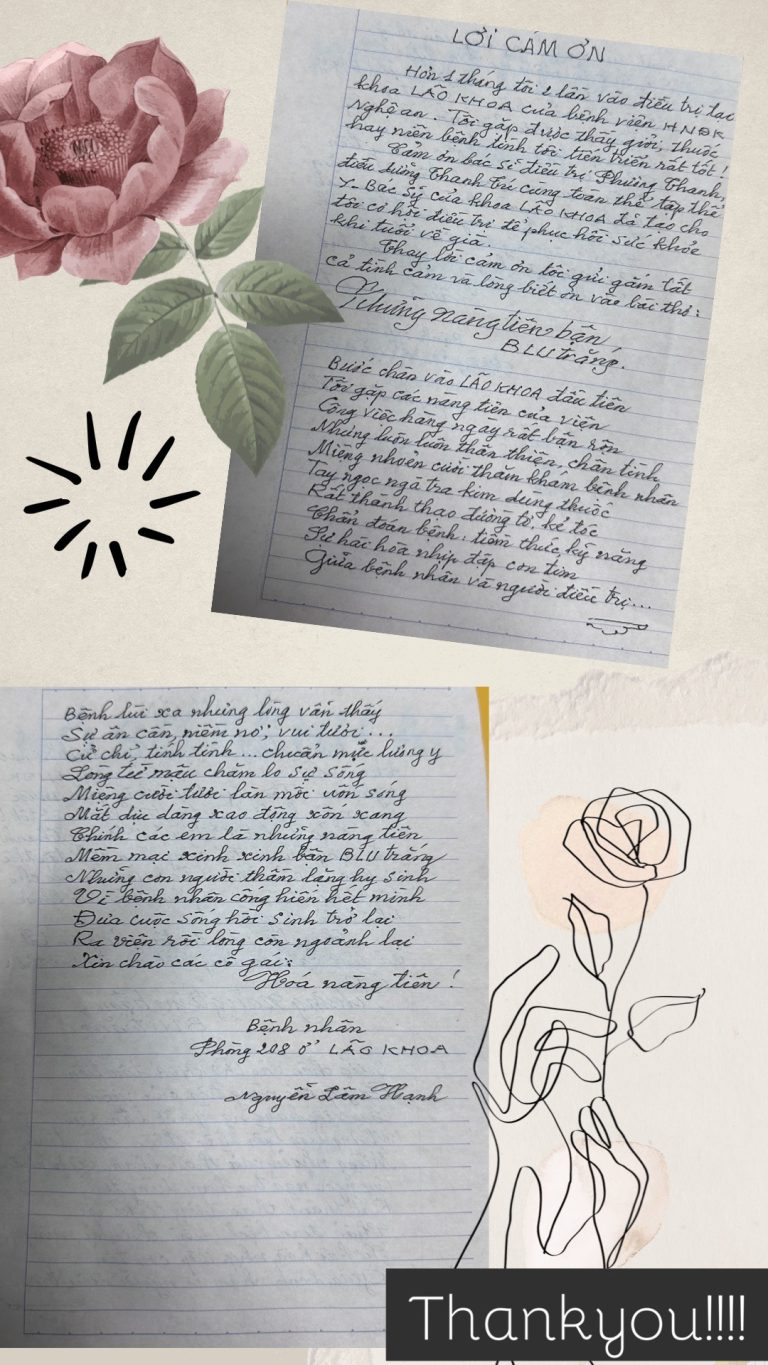 LỜI CÁM ƠN
Hơn 1 tháng tôi 2 lần vào điều trị tại
khoa LÃO KHOA của bệnh viện HNĐK
Nghệ an. Tôi gặp được thầy giỏi, thuốc
hay nên bệnh tình tôi tiến triển rất tốt!
Cảm ơn bác sĩ điều trị Phương Thanh,
điều dưỡng Thanh Trú cùng toàn thể tập thể
Y-Bác Sỹ của khoa LÃO KHOA đã tạo cho
tôi cơ hội điều trị để phục hồi sức khỏe
khi tuổi về già.
Thay lời cảm ơn tôi gửi gắm tất
cả tình cảm và lòng biết ơn vào bài thơ:
Những nàng tiên bận
BLU trắng.
Bước chân vào LÃO KHOA đầu tiên
Tôi gặp các nàng tiên của viện
Công việc hàng ngay rất bận rộn
Nhưng luôn luôn thân thiện, chân tình
Miệng nhoẻn cười thăm khám bệnh nhân
Tay ngọc ngà tra kim dùng thuốc
Rất thành thạo đường tơ, kẻ tóc
Chẩn đoán bệnh, tiềm thức, kỹ năng
Sự hài hòa nhịp đập con tim
Giữa bệnh nhân và người điều trị...
Bệnh lùi xa nhưng lòng vẫn thấy
Sự ân cần, niềm nở, vui tươi...
Cử chỉ, tính tình... chuẩn mực lương y
Lòng từ mẫu chăm lo sự sống
Miệng cười tươi làn môi uốn sóng
Mắt dịu dàng xao động xốn xang
Chính các em là những nàng tiên
Mềm mại xinh xinh bận BLU trắng
Những con người thầm lặng hy sinh
Vì bệnh nhân cống hiến hết mình
Đưa cuộc sống hồi sinh trở lại
Ra viện rồi lòng còn ngoảnh lại
Xin chào các cô gái:
Hoá nàng tiên!
Bệnh nhân
Phòng 208 ở LÃO KHOA
Nguyễn Lâm Hạnh
Thankyou!!!!